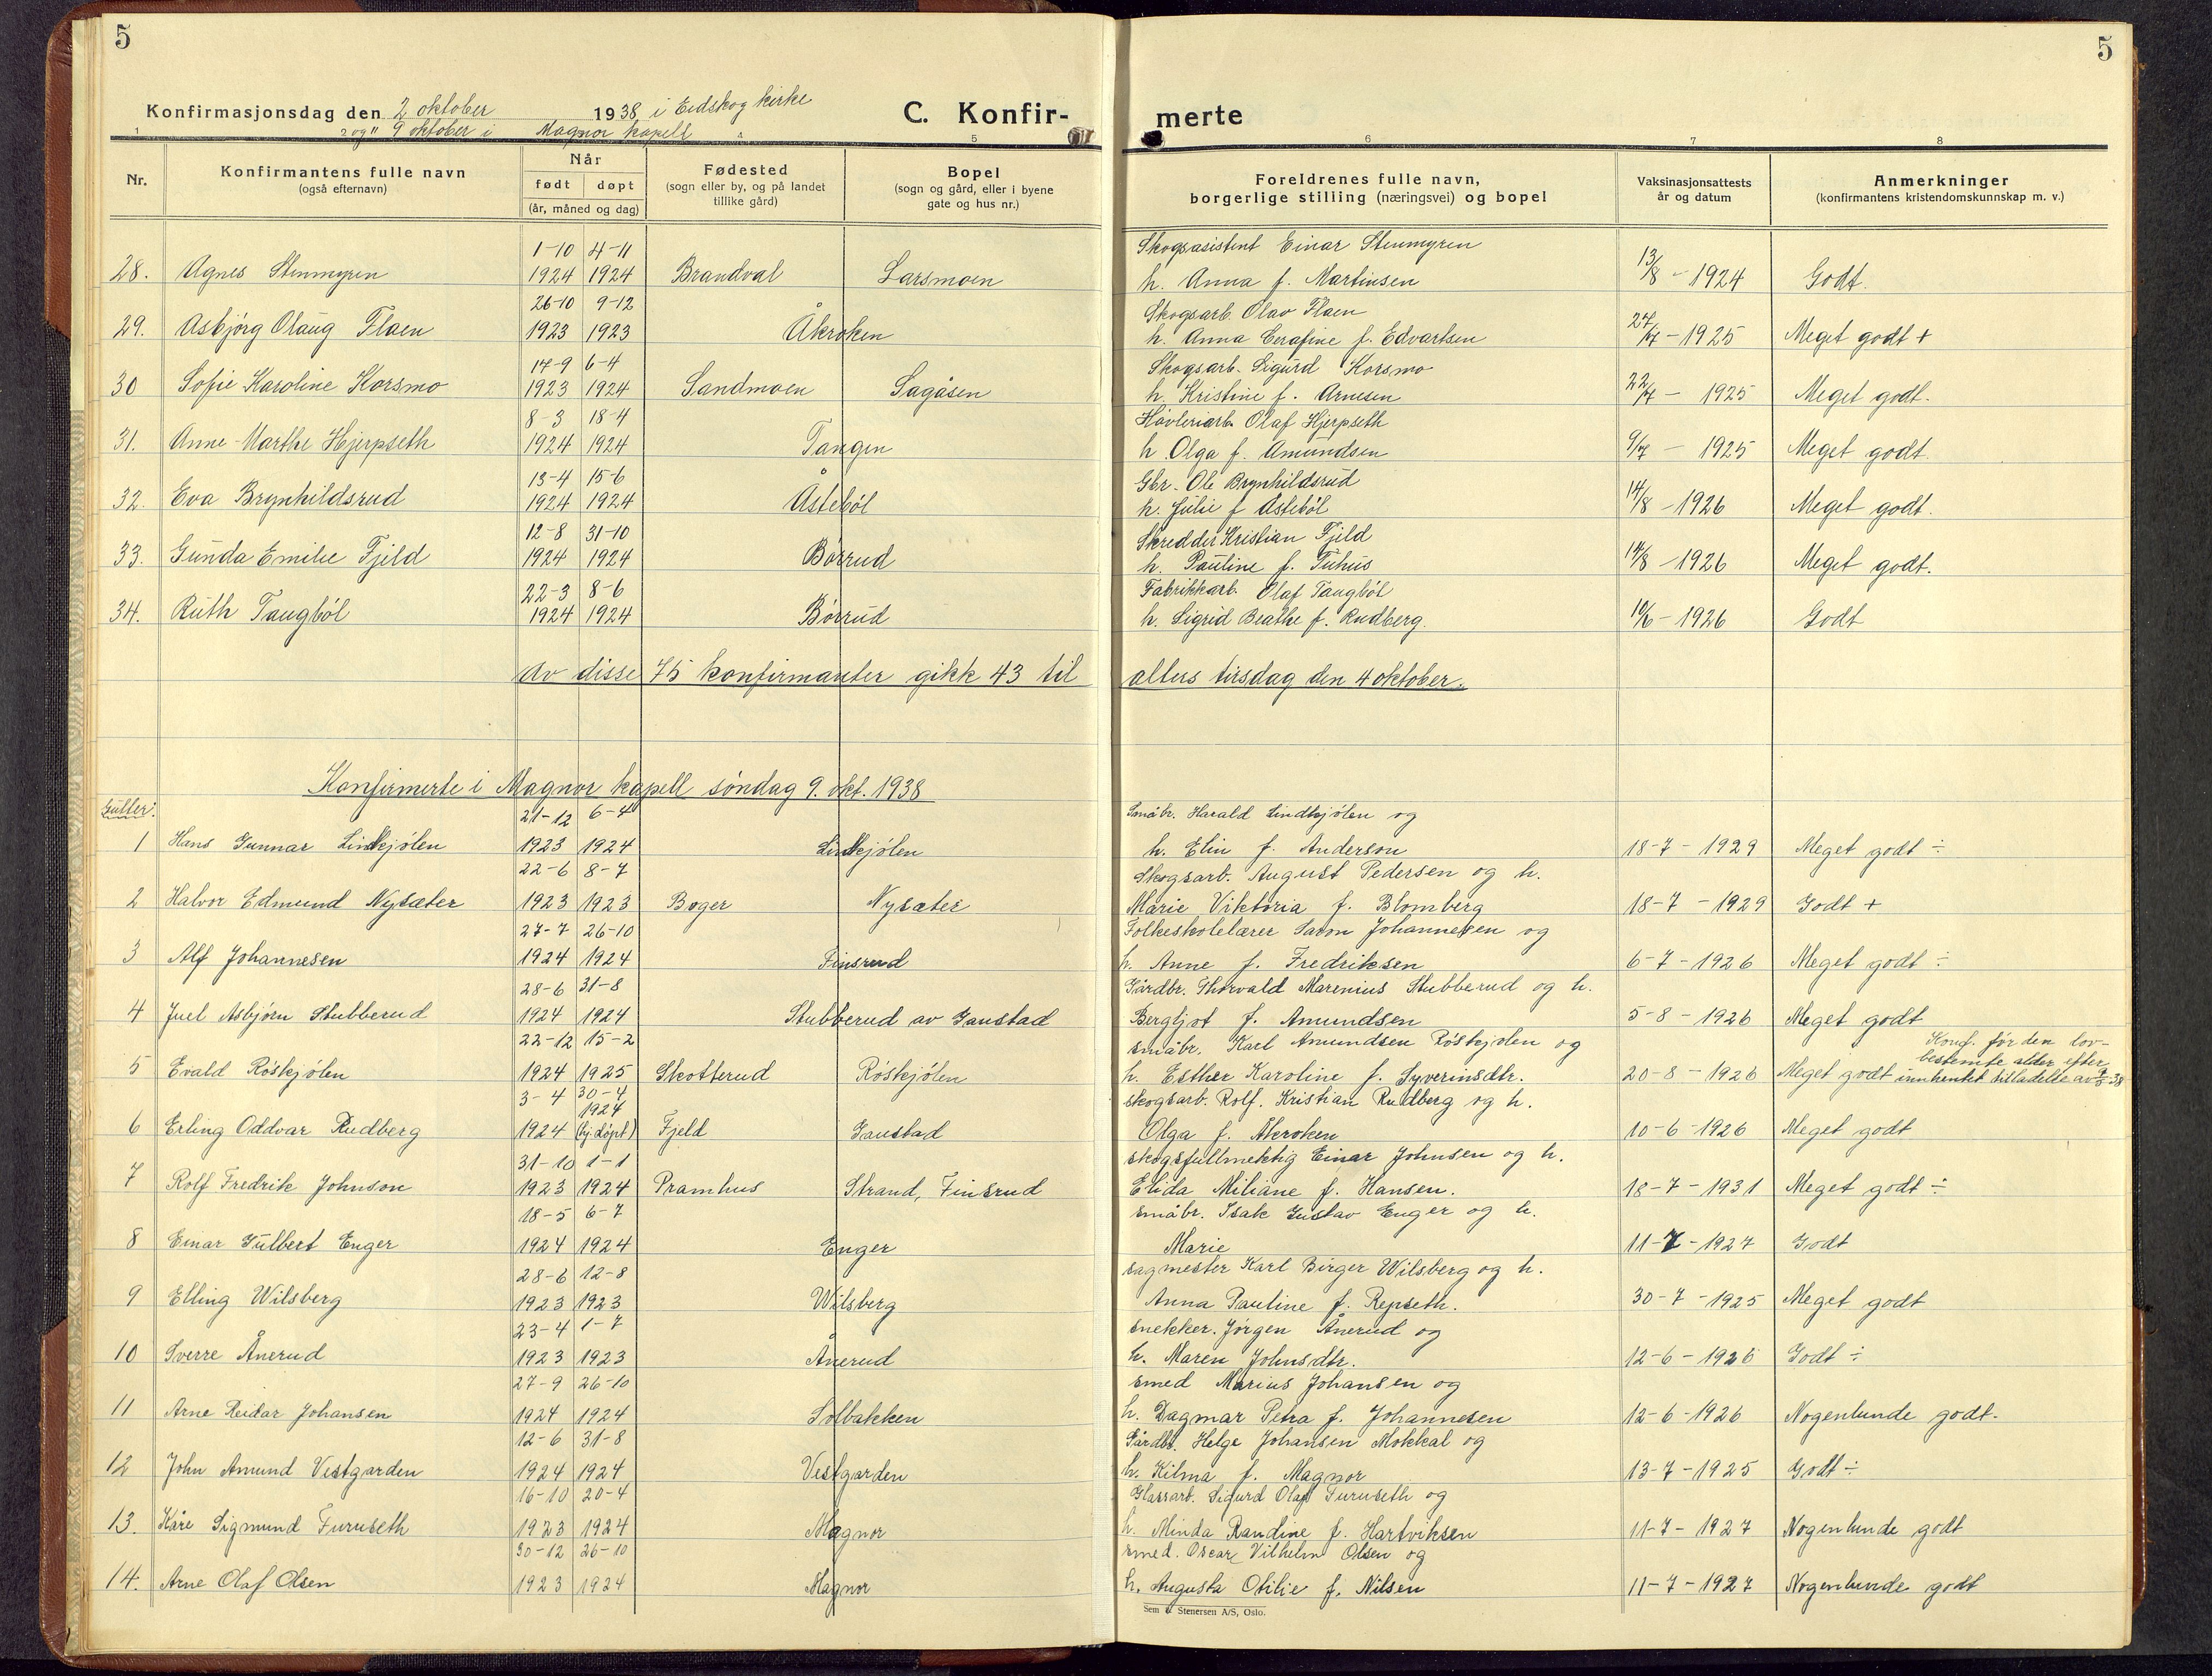 5
5
Konfirmasjonsdag den 2 oktober 1938 i Eidskog kirke
og 9 oktober i Magnor kapell
C. Konfirmerte
1 5 6 7 8
Nr. Konfirmantens fulle navn (også efternavn) Når født døpt (år, måned og dag) Fødested (sogn eller by, og på landet tillike gård) Bopel (sogn og gård, eller i byene gate og hus nr.) Foreldrenes fulle navn, borgerlige stilling (næringsvei) og bopel Vaksinasjonsattests år og datum Anmerkninger (konfirmantens kristendomskunnskap m. v.)
1-10 4-11 Skogsasistent Einar Stenmyren
28. Agnes Stenmyren 1924 1924 Brandval Larsmoen h. Anna f. Martinsen 13/8 - 1924 Godt.
26-10 9-12 Skogsarb. Olav Flaen
29. Asbjörg Olaug Flaen 1923 1923 Åkroken h. Anna Serafine f. Edvartsen 24/7 - 1925 Meget godt +
17-9 6-4 Skogsarb. Sigurd Korsmo
30 Sofie Karoline Korsmo 1923 1924 Sandmoen Sagåsen h. Kristine f. Arnesen 22/7 - 1925 Meget godt.
8-3 18-4 Hövleriarb. Olaf Hjerpseth
31. Anne-Marthe Hjerpseth 1924 1924 Tangen h. Olga f. Amundsen 9/7 - 1925 Meget godt.
13-4 15-6 Gbr. Ole Brynhildsrud
32. Eva Brynhildsrud 1924 1924 Åsteböl h. Julie f Åsteböl 14/8 - 1926 Meget godt.
12-8 31-10 Skredder Kristian Fjeld
33. Gunda Emilie Fjeld 1924 1924 Börrud h. Pauline f. Tuhus 14/8 - 1926 Meget godt.
22-3 8-6 Fabrikkarb. Olaf Taugböl
34. Ruth Taugböl 1924 1924 Börrud h. Sigrid Beathe f. Rudberg. 10/6 - 1926 Godt
Av disse 75 konfirmanter gikk 43 til alters tirsdag den 4 oktober.
Konfirmerte i Magnor kapell söndag 9. okt. 1938
Gutter:
21-12 6-4 Småbr. Harald Lindkjølen og
1 Hans Gunnar Lindkjølen 1923 1924 Lindkjølen h. Elin f. Anderson 18-7-1929 Meget godt ÷
22-6 8-7 Skogsarb. August Pedersen og h.
2 Halvor Edmund Nysæter 1923 1923 Boger Nysæter Marie Viktoria f. Blomberg 18-7-1929 Godt +
27-7 26-10 Folkeskolelærer Johannesen og
3 Alf Johannesen 1924 1924 Finsrud h. Anne f. Fredriksen 6-7-1926 Meget godt ÷
28-6 31-8 Gårdbr. Thorvald Marenius Stubberud og h.
4 Juel Asbjørn Stubberud 1924 1924 Stubberud av Gaustad Bergljot f. Amundsen 5-8-1926 Meget godt
22-12 15-2 småbr. Karl Amundsen Røskjølen og Konf. før den lov-
bestemte alder efter
5 Evald Røskjølen 1924 1925 Skotterud Røskjølen h. Esther Karoline f. Syverinsdtr. 20-8-1926 Meget godt innhentet tilladelse av
3-4 30-4 skogsarb. Rolf. Kristian Rudberg og h.
1924
6 Erling Oddvar Rudberg 1924 (hj.døpt) Fjeld Gaustad Olga f. Åkroken 10-6-1926 Meget godt
31-10 1-1 skogsfullmektig Einar Johnsen og h.
7 Rolf Fredrik Johnson 1923 1924 Pramhus Strand, Finsrud Elida Miliane f. Hansen. 18-7-1931 Meget godt ÷
18-5 6-7 småbr. Isak Gustav Enger og h.
8 Einar Gulbert Enger 1924 1924 Enger Marie 11-7-1927 Godt
28-6 12-8 sagmester Karl Birger Wilsberg og h.
9 Elling Wilsberg 1923 1923 Wilsberg Anna Pauline f. Repseth. 30-7-1925 Meget godt
23-4 1-7 snekker. Jørgen Ånerud og
10 Sverre Ånerud 1923 1923 Ånerud h. Maren Johnsdtr. 12-6-1926 Godt ÷
27-9 26-10 smed Marius Johansen og
11 Arne Reidar Johansen 1924 1924 Solbakken h. Dagmar Petra f. Johannesen 12-6-1926 Nogenlunde godt.
12-6 31-8 Gårdbr. Helge Johansen Mokkal og
12 John Amund Vestgarden 1924 1924 Vestgarden h. Kilma f. Magnor 13-7-1925 Godt ÷
16-10 20-4 Glassarb. Sigurd Olaf Furuseth og
13. Kåre Sigmund Furuseth 1923 1924 Magnor h. Minda Randine f. Hartviksen 11-7-1927 Nogenlunde godt
30-12 26-10 smed. Oscar Vilhelm Olsen og
14. Arne Olaf Olsen 1923 1924 Magnor h. Augusta Otilie f. Nilsen 11-7-1927 Nogenlunde godt
Sem & Stenersen A/S, Oslo.